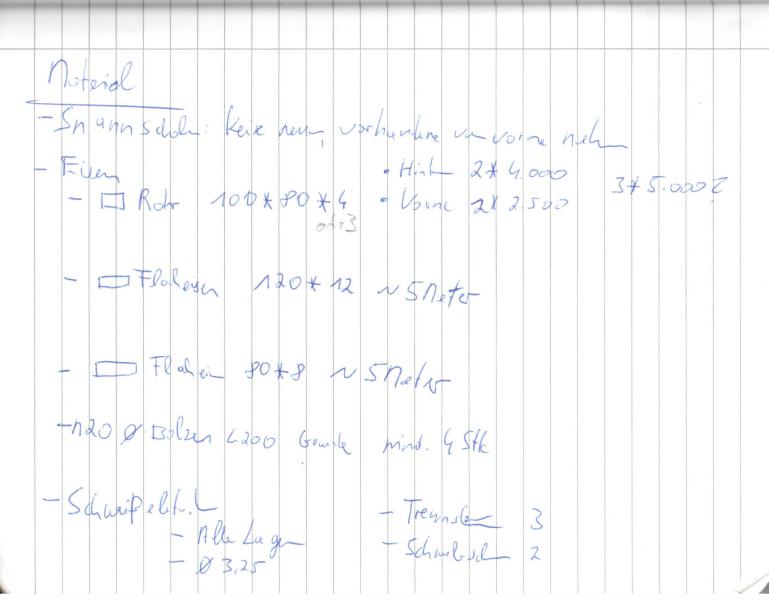 Material
- Spannschloß: Keine neuen, vorhandene von vorne nehmen
- Eisen
- Rohr 100*80*4 oder 3
• Hint 2*4.000
• Vorne 2*2.500
3*5.000?
- Flacheisen 120*12 ~5Meter
- Flachei 80*8 ~5Meter
- M20 Ø Bolzen L200 Gewinde mind. 4 Stk
- Schweißelektr.
- Alle Lagen
- Ø 3,25
- 3
- 2